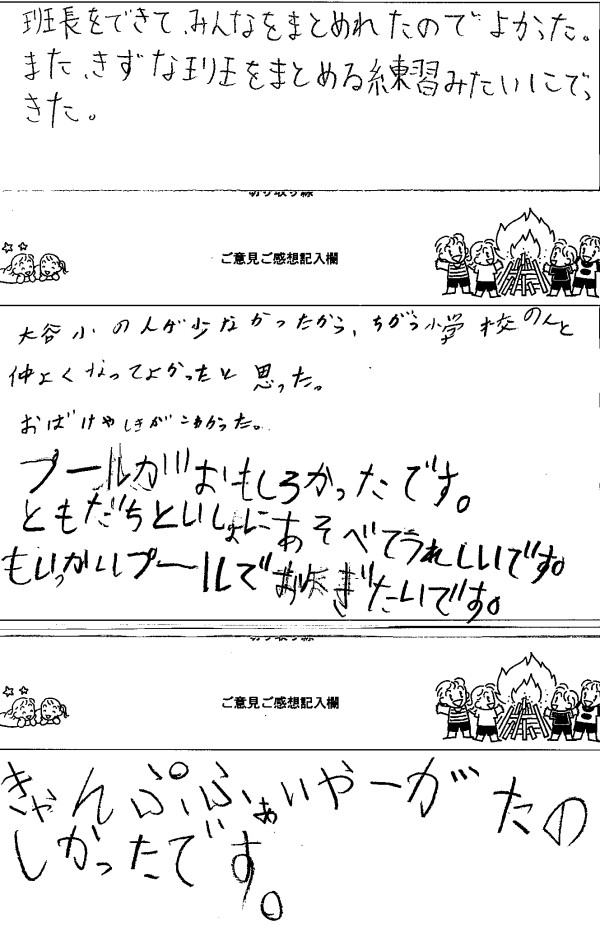 班長をできて、みんなをまとめれたのでよかった。
また、きずな班をまとめる練習みたいにでっ
きた。
切り取り線
ご意見ご感想記入欄
大谷小の人が少なかったから、ちがう小学校の人と
仲よくなってよかったと思った。
おばけやしきがこわかった。
プールがおもしろかったです。
ともだちといしょにあそべてうれしいです。
もいっかいプールでおよぎたいです。
切り取り線
ご意見ご感想記入欄
きゃんぷふぁいやーがたの
しかったです。